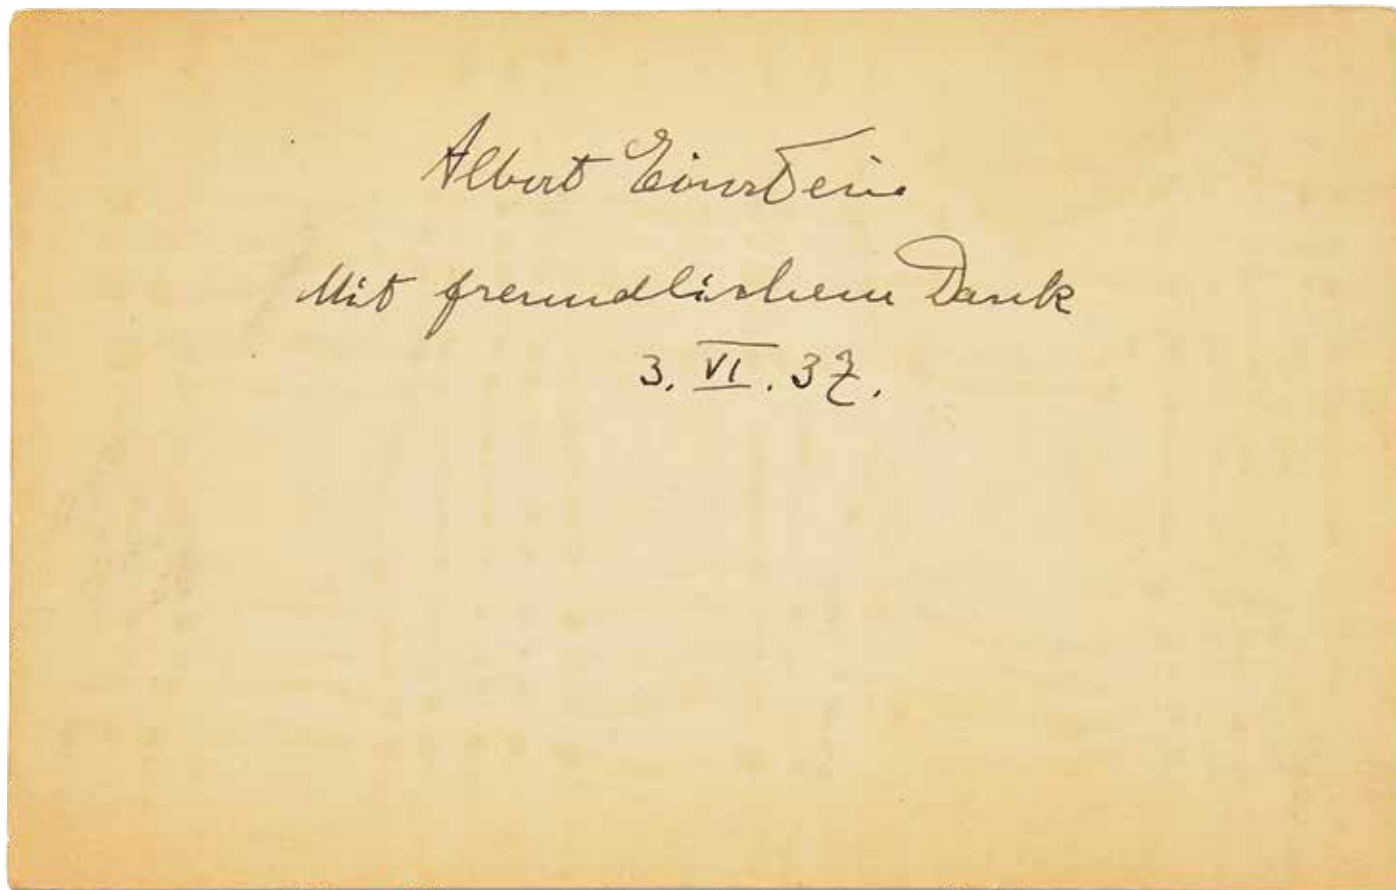 Albert Einstein
Mit freundlichem Dank
3. VI. 37.